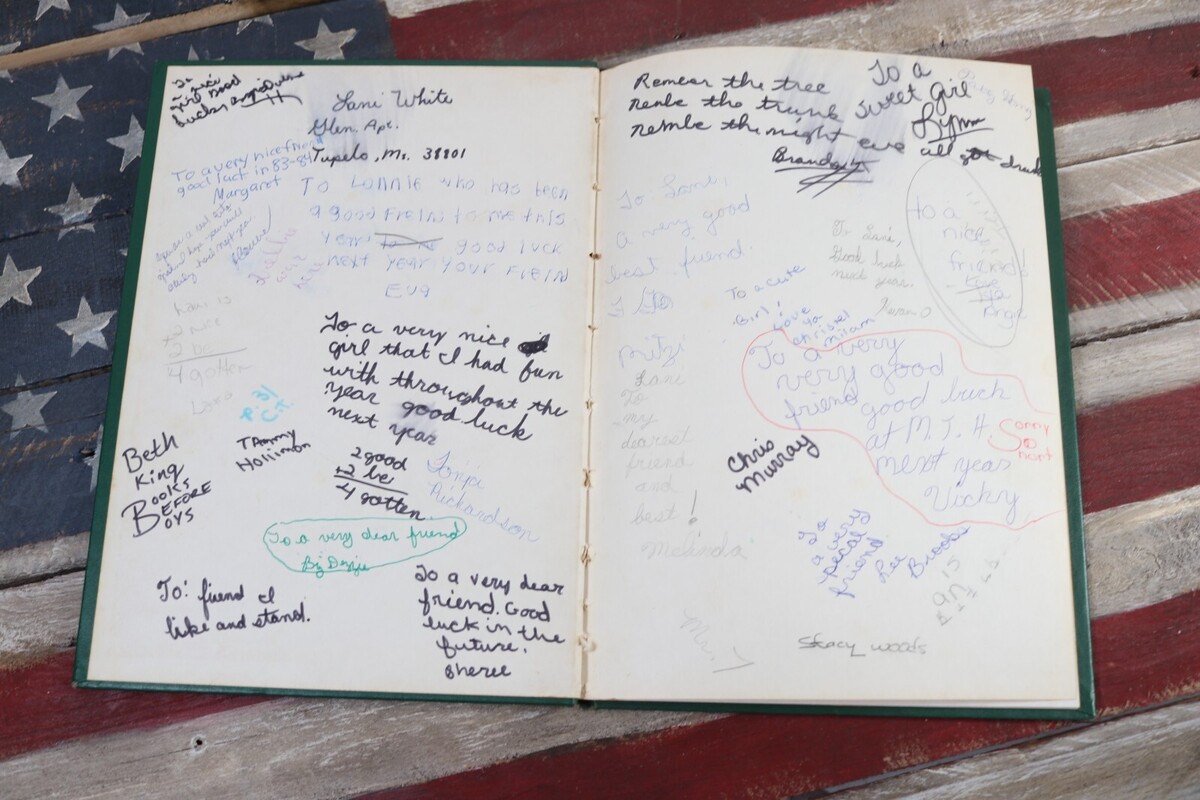 girl good
Lani White
Glen. Apt.
Tupelo, Ms. 38801
To a very nice friend
good luck in 83-84
Margaret
To Lonnie who has been
a good Freind to me this
year good luck
next year your Freind
Eva
Lani is
2 nice
2 be
4 gotten
Lara
To a very nice
girl that I had fun
with throughout the
year good luck
next year
2 good
+2 be
4 gotten.
Tonya
Richardson
Beth
King
Books
Before
Boys
TAmmy
Hollimon
To a very dear friend
By Dezzie
To: fiend I
like and stand.
To a very dear
friend. Good
luck in the
future.
Sheree
Remear the tree
remle the trunk
remble the night eve all got drunk
Brandy
To a
sweet girl
Lynn
To Lani,
a very good
best friend.
Mitzi
Lani
To
my
dearest
friend
and
best!
Melinda
To Lani,
Good luck
next year.
to a
nice
friend!
Angie
To a cute
Girl!
Love
ya
Christel
Milam
To a very
very good
friend good luck
at M.J.H
next year
Vicky
Sorry
So
Chris
Murray
To
a very
pecal
friend
Lee
Brooks
Stacy woods